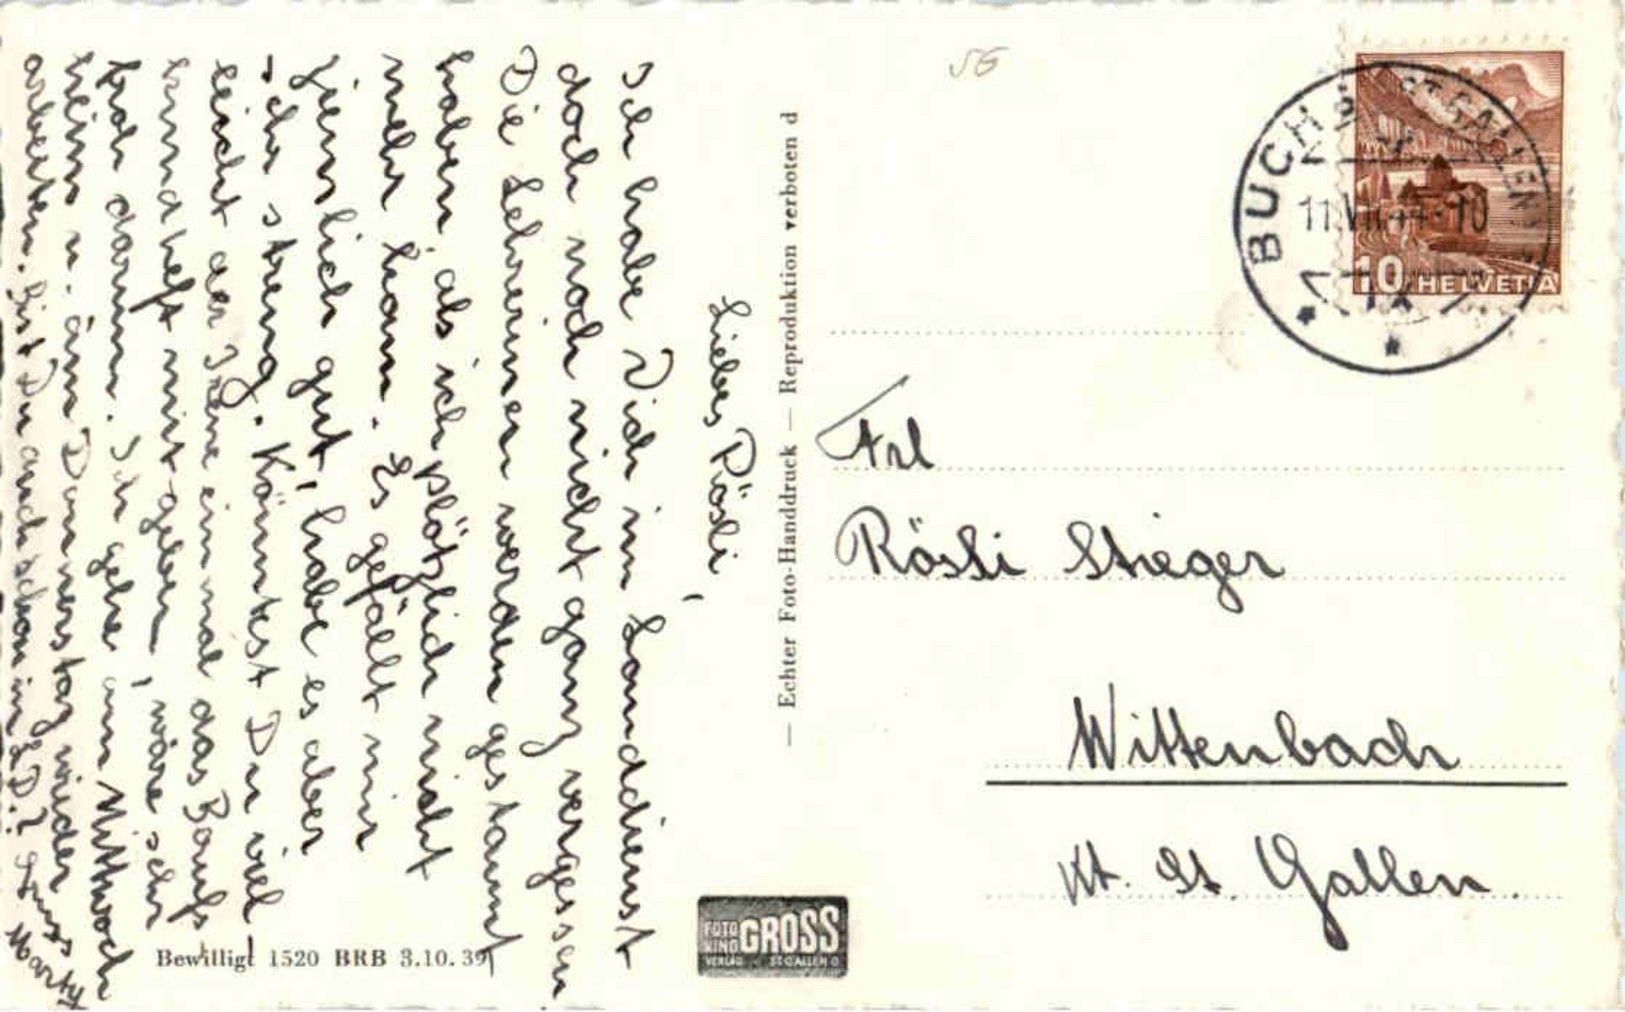 Liebes Rösli,
Ich habe Dich im Landdienst
doch noch nicht ganz vergessen
Die Lehrerinen werden gestaunt
haben, als ich plötzlich nicht
mehr kam. Es gefällt mir
ziemlich gut, habe es aber
sehr streng. Könntest Du viel
leicht der Irene einmal das Berufs
kundheft mitgeben, wäre sehr
froh darum. Ich gehe am Mittwoch
heim u. am Donnerstag wieder
arbeiten. Bist Du auch schon im L.D.? Gruss
Marty
Bewilligt 1520 BRB 3.10.39
— Echter Foto-Handdruck — Reproduktion verboten d
FOTO
KINO GROSS
VERLAG ST GALLEN O
56
BUCHS (ST. GALLEN)
11.VII.44-10
10 HELVETIA
Frl
Rösli Stieger
Wittenbach
Kt. St. Gallen.